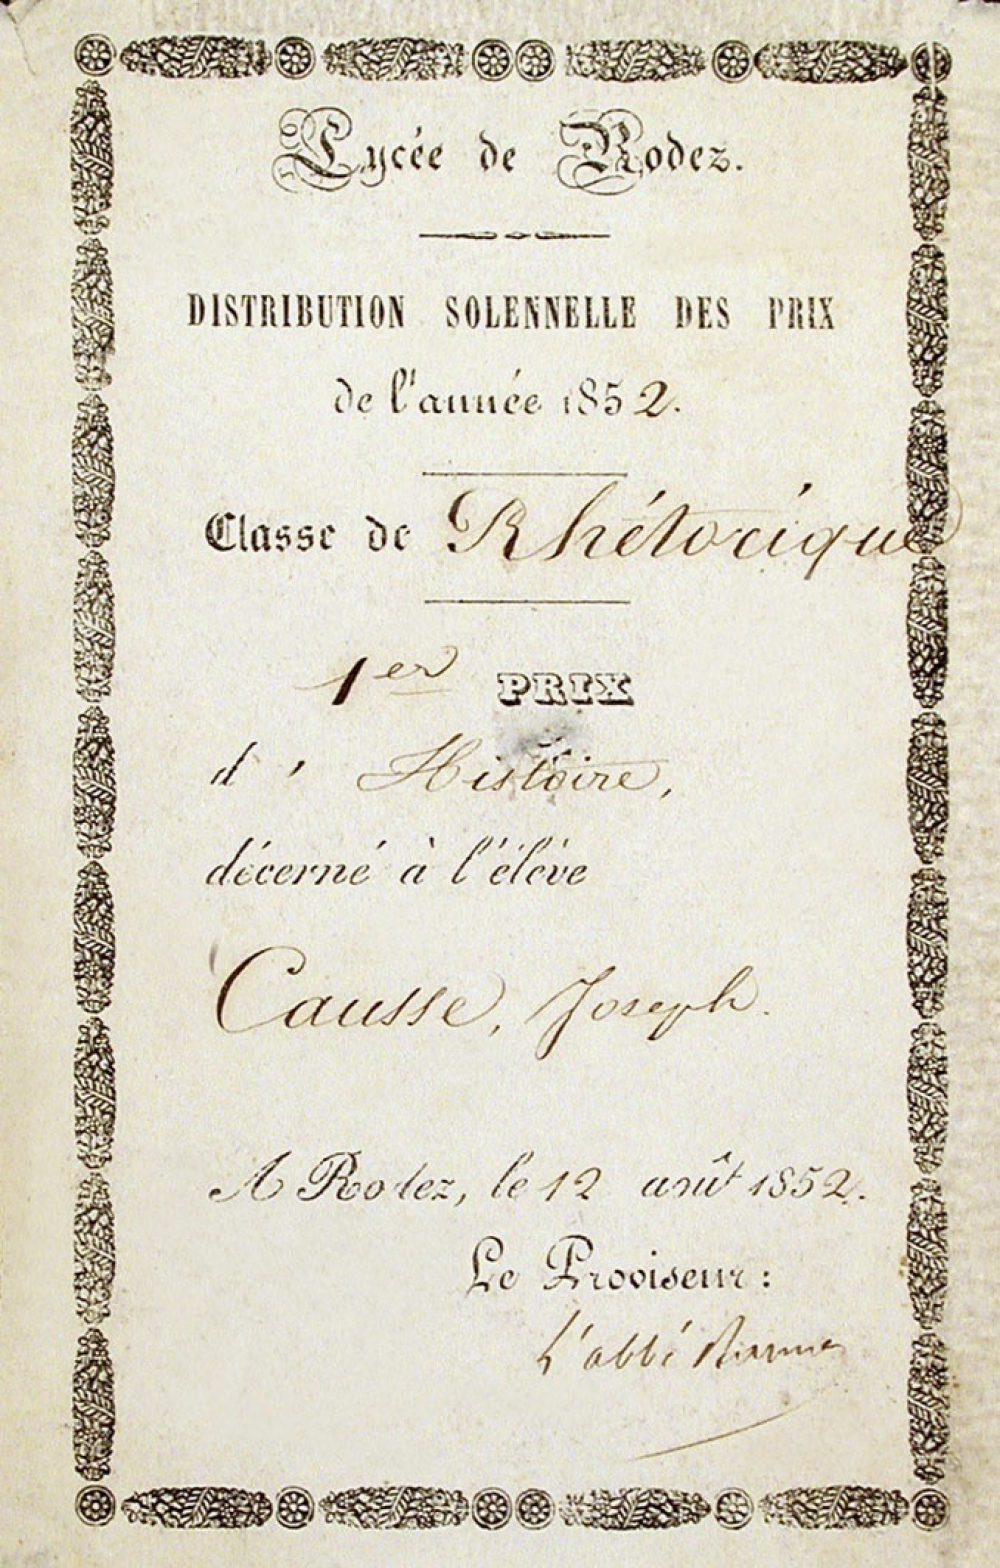 Lycée de Rodez.
DISTRIBUTION SOLENNELLE DES PRIX
de l'année 1852.
Classe de Rhétorique
1er PRIX
d'Histoire,
décerné à l'élève
Causse, Joseph.
A Rodez, le 12 août 1852.
Le Proviseur:
l'abbé